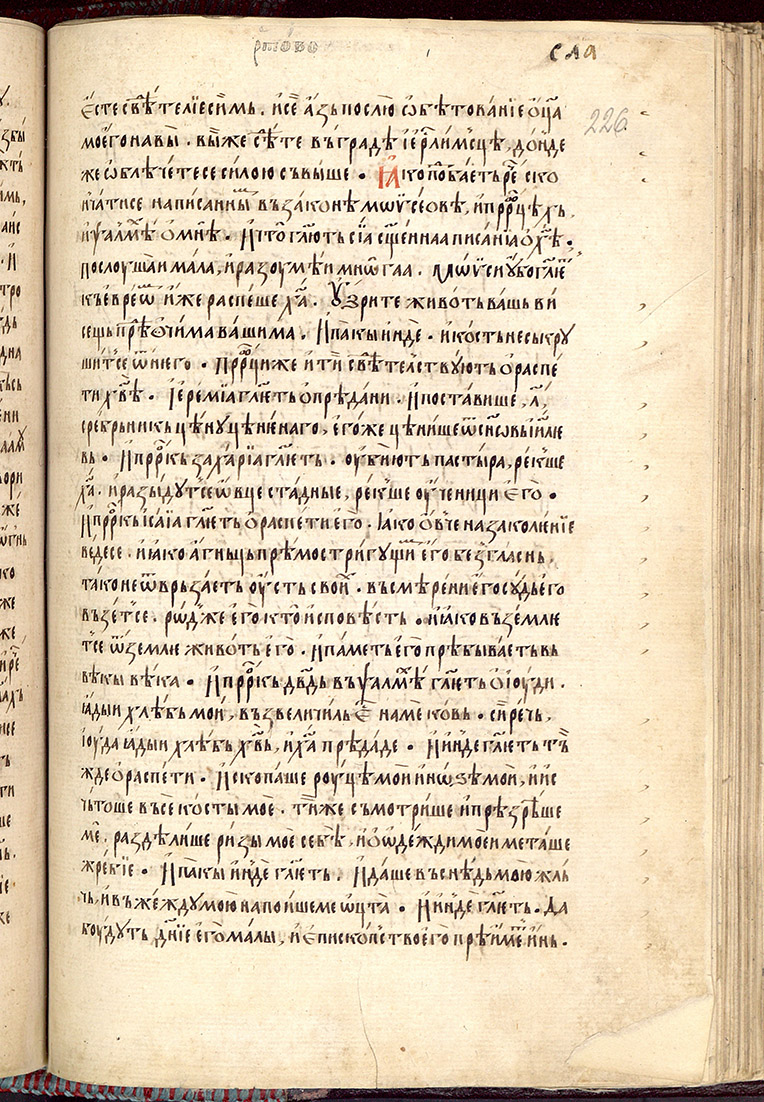 рт͠ово
сла
226
Ѥсте свѣ́теліе си́мь. и се́ а́зь послю̀ ѡбѣ́тованїе ѻц҃а
моего̀ на вы̀. вы́же сѣди́те въ гра́дѣ ї҆ер҃лимсцѣ, до́нде
же ѡблѣ́четесе си́лою съвы́ше. Ꙗ҆́ко поⷣбаеть рⷱ҇е ско
нча́тисе на писаннымь въ зако́нѣ мѡѵ̈се́овѣ, и҆ прⷪ҇рцѣхъ,
и҆ ѱалⷨѣ ѻ҆ мнѣ̀. И҆ что̀ гл҃ють сїа̀ сщ҃е́ннаа писа́нїа ѻ҆ хⷭ҇ѣ.
послоу́шаи ма́ла, и҆ разоумѣ́и мнѡ́гаа. Мѡѵ̈си ꙋбо гл҃ѥть
къ євре́ѡⷨ и҆́же распе́ше хⷭ҇а. Оу҆́зрите живо́ть ва́шь ви
сещь прѣⷣ ѻчи́ма ва́шима. И҆ па́кы и҆́нде. и҆ ко́сть не съкрꙋ
ши́тсе ѿ него. Прⷪ҇рци же и҆ ті́и свѣⷣтелствꙋють ѻ҆ распе́
ти хв҃ѣ. Ї҆ереми́а гл҃еть ѻ҆ прѣда́ни. И҆ поста́више, л҃,
сре́брьникь цѣ́нꙋ цѣне́ннаго, є҆го́же цѣни́ше ѿ сн҃ѡвь і҆и҃лѥ
вь. И҆ прⷪ҇ркь заха́рїа гл҃еть. оу҆бїють па́стыра, ре́кше
хⷭ҇а. и҆ разы́дꙋтсе ѡ҆́вце ста́дные, ре́кше оу҆ченици є҆го̀.
И҆ прⷪ҇ркь і҆са́їа гл҃еть ѻ҆ распе́ти є҆го̀. Ꙗ҆́ко ѻ҆вче на заколе́нїе
веде́се. и҆ ꙗ҆́ко а҆́гньць прѣ́мо стригꙋ́щомꙋ є҆го̀ безгла́снь,
та́ко не ѿврьза́еть оу҆́сть свои́хь. въ смѣре́ни є҆го̀ сꙋ́дь є҆го̀
възе́тсе. рѡ́дже є҆го̀ кто̀ и҆сповѣ́сть. ꙗ҆ко възе́млю
тсе ѿ зе́мле живо́ть є҆го̀. И҆ па́меть є҆го̀ прѣбыва́еть вь
вѣ́кы вѣ́ка. И҆ прⷪ҇ркь дв҃дь въ ѱалⷨѣ гл҃еть ѻ҆ і҆оу́ди.
ꙗ҆ды́и хлѣ́бь мо́и, възвели́чиль є҆ⷭ҇ на ме ко́вь. си́речь,
і҆оу́да ꙗ҆ды́и хлѣ́бь хв҃ь, и҆ хⷭ҇а прѣда́де. И҆ и҆́нде гл҃еть тъ́
жде ѻ҆ распе́ти. И҆скопа́ше роу́цѣ мои и҆ но́ѕѣ мои, и҆ ис
чьто́ше въсе ко́сты мое. ті́и же съмотри́ше и҆ прѣзрѣ́ше
ме. раздѣли́ше ри́зы мое себѣ̀, и҆ ѻ҆ ѡде́жди мое́и мета́ше
жре́бїе. И҆ па́кы и҆́нде гл҃еть. И҆ да́ше въ снѣ́дь мою̀ жль
чь, и҆ въ же́ждꙋ мою̀ напои́ше ме ѡ́цта. И҆ и҆нде гл҃еть. Да
боу́дꙋть дн҃їе є҆го̀ ма́лы, и҆ є҆пи́скопство є҆го̀ прѣи́меть и҆́нь.